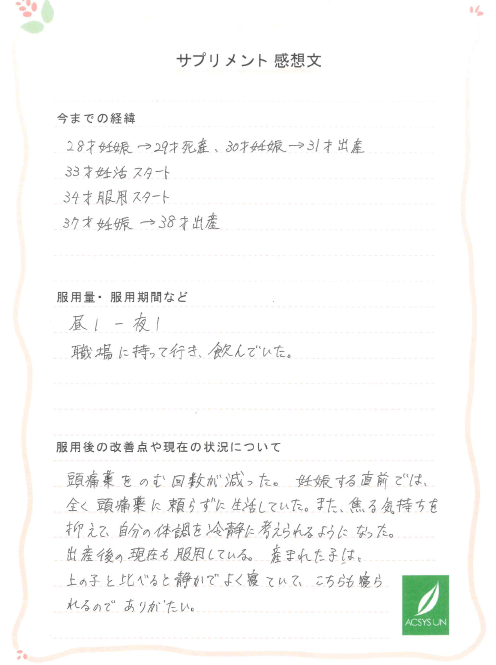 サプリメント 感想文
今までの経緯
28才妊娠→29才死産、30才妊娠→31才出産
33才妊活スタート
34才服用スタート
37才妊娠→38才出産
服用量・服用期間など
昼1ー夜1
職場に持って行き、飲んでいた。
服用後の改善点や現在の状況について
頭痛薬をのむ回数が減った。妊娠する直前では、
全く頭痛薬に頼らずに生活していた。また、焦る気持ちを
抑えて、自分の体調を冷静に考えられるようになった。
出産後の現在も服用している。産まれた子は。
上の子と比べると静かでよく寝ていて、こちらも寝ら
れるのでありがたい。
ACSYSUN